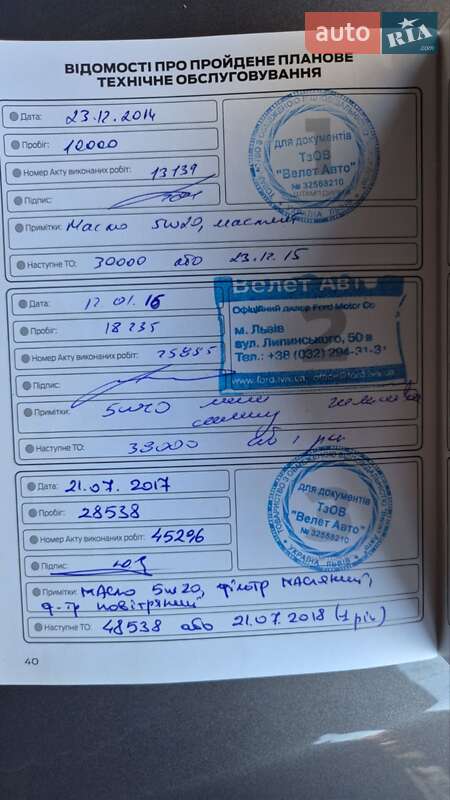 auto RIA.com
ВІДОМОСТІ ПРО ПРОЙДЕНЕ ПЛАНОВЕ
ТЕХНІЧНЕ ОБСЛУГОВУВАННЯ
Дата: 23.12.2014
Пробіг: 10000
Номер Акту виконаних робіт: 13139
Підпис:
Примітки: Масло 5w20,
Наступне ТО: 30000 або 23.12.15
для документів
ТзОВ
"Велет Авто"
№ 32568210
УКРАЇНА
Дата: 12.01.16
Пробіг: 18235
Номер Акту виконаних робіт:
Підпис:
Примітки: 5w20
Наступне ТО: аб 1 рік
Велет Авто
Офіційний дилер Ford Motor Co
м. Львів
вул. Липинського, 50 в
Тел.: +38 (032) 294-31-31
www.ford.lviv.ua,
Дата: 21.07.2017
Пробіг: 28538
Номер Акту виконаних робіт: 45296
Підпис:
Примітки: МАсло 5w20, фільтр масляний,
ф-тр повітряний
Наступне ТО: 48538 або 21.07.2018 (1 рік)
для документів
ТзОВ
"Велет Авто"
№ 32568210
УКРАЇНА ЛЬВІВ
40